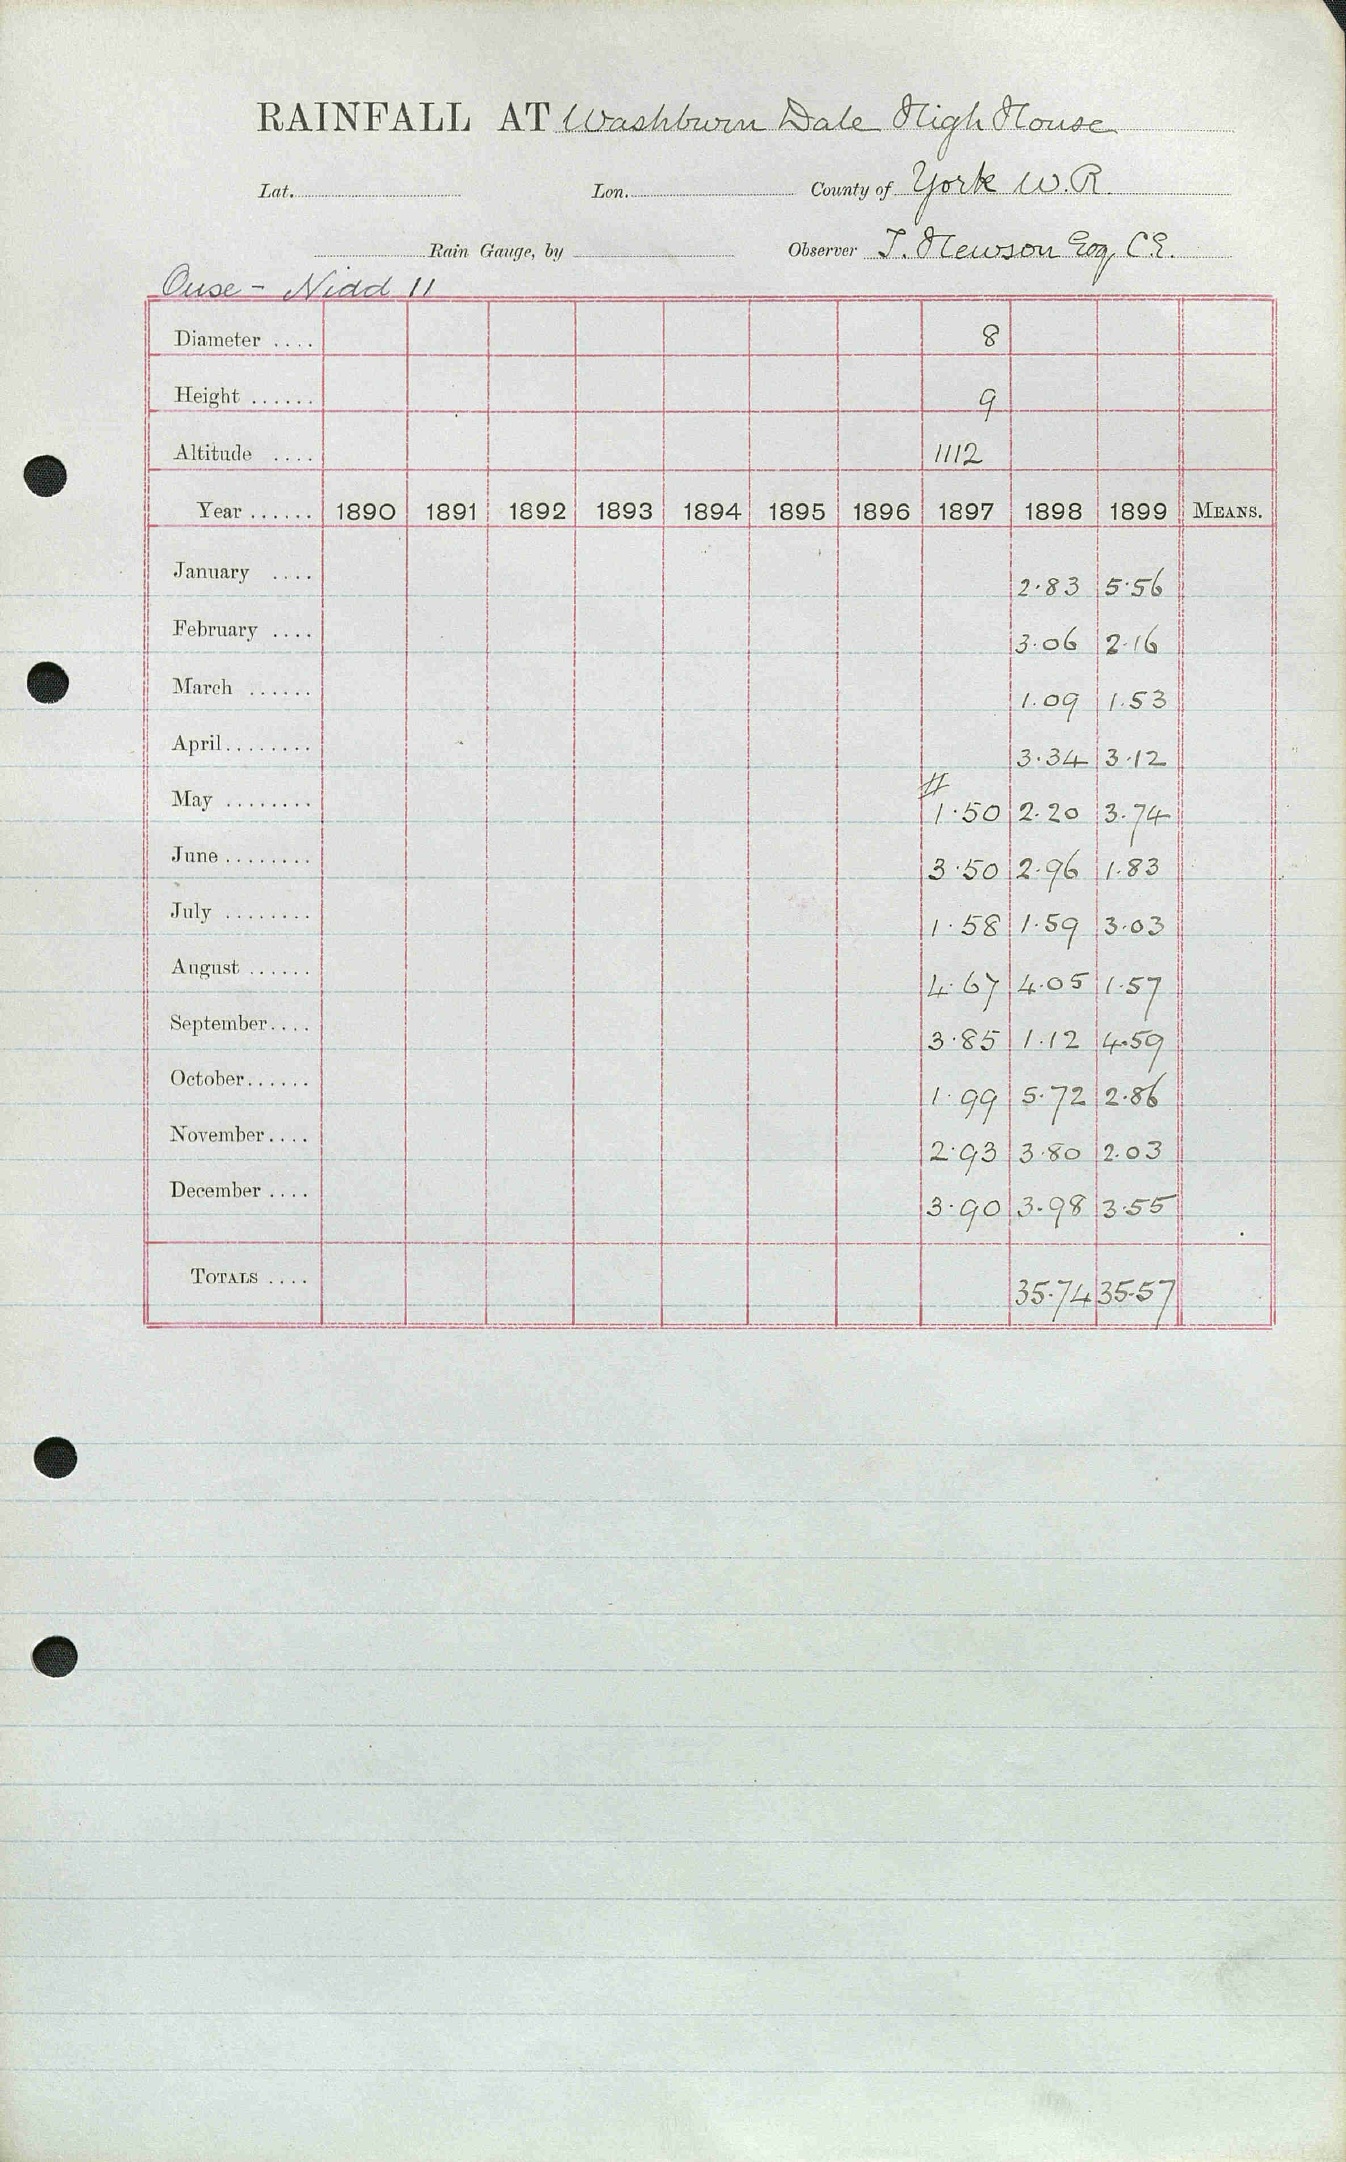 RAINFALL AT Washburn Dale High House
Lat. Lon. County of York W.R.
Rain Gauge, by Observer T. Hewson Esq. C.E.
Ouse - Nidd 11
Diameter .... 8
Height ...... 9
Altitude .... 1112
Year ...... 1890 1891 1892 1893 1894 1895 1896 1897 1898 1899 MEANS.
January .... 2.83 5.56
February .... 3.06 2.16
March ...... 1.09 1.53
April........ 3.34 3.12
#
May ........ 1.50 2.20 3.74
June ........ 3.50 2.96 1.83
July ........ 1.58 1.59 3.03
August ...... 4.67 4.05 1.57
September.... 3.85 1.12 4.59
October...... 1.99 5.72 2.86
November.... 2.93 3.80 2.03
December .... 3.90 3.98 3.55
TOTALS .... 35.74 35.57